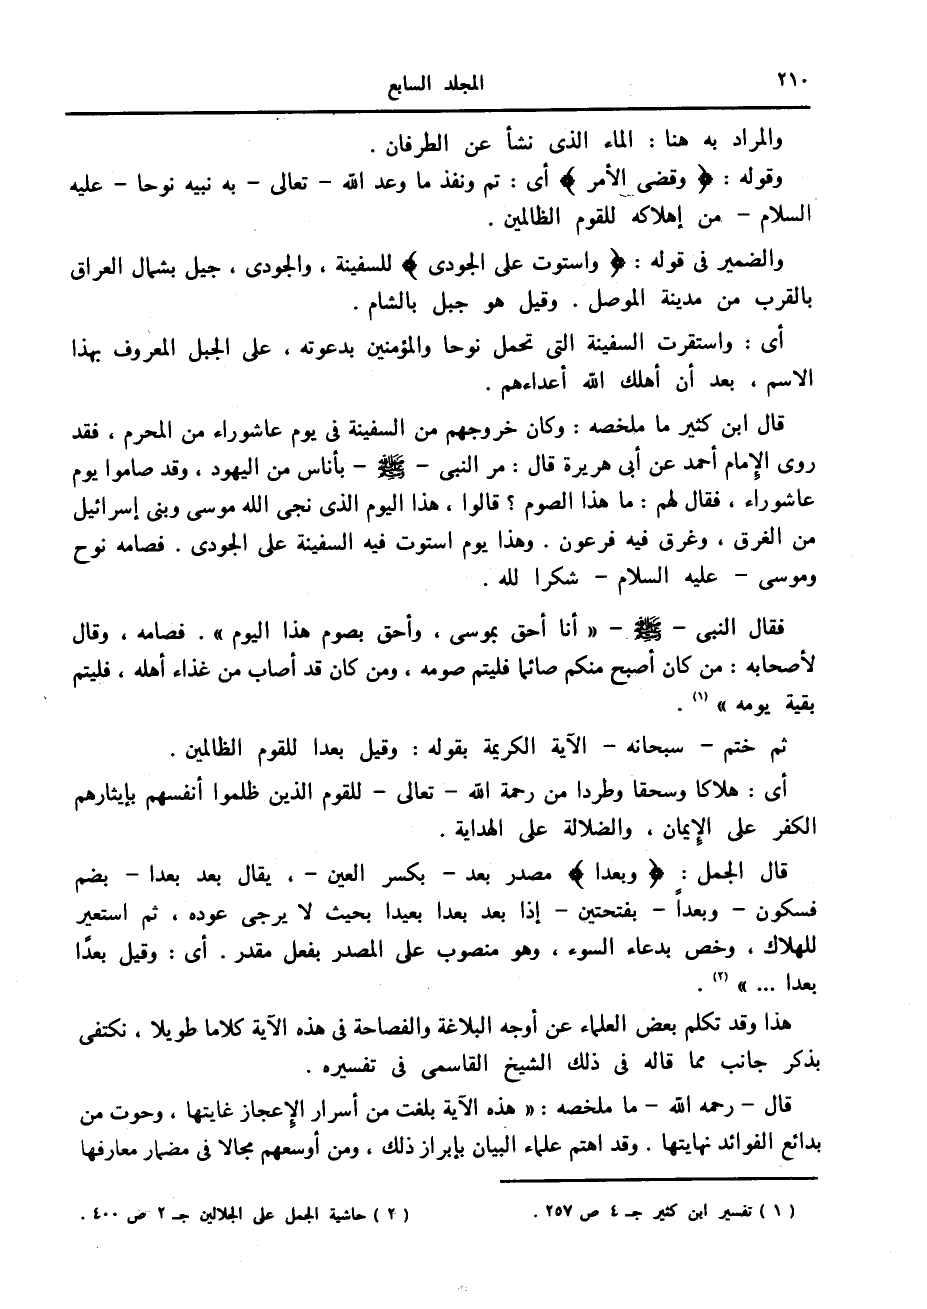 ٢١٠
المجلد السابع
والمراد به هنا : الماء الذى نشأ عن الطرفان .
وقوله : ﴿ وقضى الأمر ﴾ أى : تم ونفذ ما وعد الله – تعالى – به نبيه نوحا – عليه
السلام – من إهلاكه للقوم الظالمين .
والضمير فى قوله : ﴿ واستوت على الجودى ﴾ للسفينة ، والجودى ، جبل بشمال العراق
بالقرب من مدينة الموصل . وقيل هو جبل بالشام .
أى : واستقرت السفينة التى تحمل نوحا والمؤمنين بدعوته ، على الجبل المعروف بهذا
الاسم ، بعد أن أهلك الله أعداءهم .
قال ابن كثير ما ملخصه : وكان خروجهم من السفينة فى يوم عاشوراء من المحرم ، فقد
روى الإمام أحمد عن أبى هريرة قال : مر النبى – ﷺ – بأناس من اليهود ، وقد صاموا يوم
عاشوراء ، فقال لهم : ما هذا الصوم ؟ قالوا ، هذا اليوم الذى نجى الله موسى وبنى إسرائيل
من الغرق ، وغرق فيه فرعون . وهذا يوم استوت فيه السفينة على الجودى . فصامه نوح
وموسى – عليه السلام – شكرا لله .
فقال النبى – ﷺ – « أنا أحق بموسى ، وأحق بصوم هذا اليوم » . فصامه ، وقال
لأصحابه : من كان أصبح منكم صائما فليتم صومه ، ومن كان قد أصاب من غذاء أهله ، فليتم
بقية يومه » (١) .
ثم ختم – سبحانه – الآية الكريمة بقوله : وقيل بعدا للقوم الظالمين .
أى : هلاكا وسحقا وطردا من رحمة الله – تعالى – للقوم الذين ظلموا أنفسهم بإيثارهم
الكفر على الإيمان ، والضلالة على الهداية .
قال الجمل : ﴿ وبعدا ﴾ مصدر بعد – بكسر العين – ، يقال بعد بعدا – بضم
فسكون – وبعداً – بفتحتين – إذا بعد بعدا بعيدا بحيث لا يرجى عوده ، ثم استعير
للهلاك ، وخص بدعاء السوء ، وهو منصوب على المصدر بفعل مقدر . أى : وقيل بعدًا
بعدا ... » (٢) .
هذا وقد تكلم بعض العلماء عن أوجه البلاغة والفصاحة فى هذه الآية كلاما طويلا ، نكتفى
بذكر جانب مما قاله فى ذلك الشيخ القاسمى فى تفسيره .
قال – رحمه الله – ما ملخصه : « هذه الآية بلغت من أسرار الإعجاز غايتها ، وحوت من
بدائع الفوائد نهايتها . وقد اهتم علماء البيان بإبراز ذلك ، ومن أوسعهم مجالا فى مضمار معارفها
( ١ ) تفسير ابن كثير جـ ٤ ص ٢٥٧ .
( ٢ ) حاشية الجمل على الجلالين جـ ٢ ص ٤٠٠ .